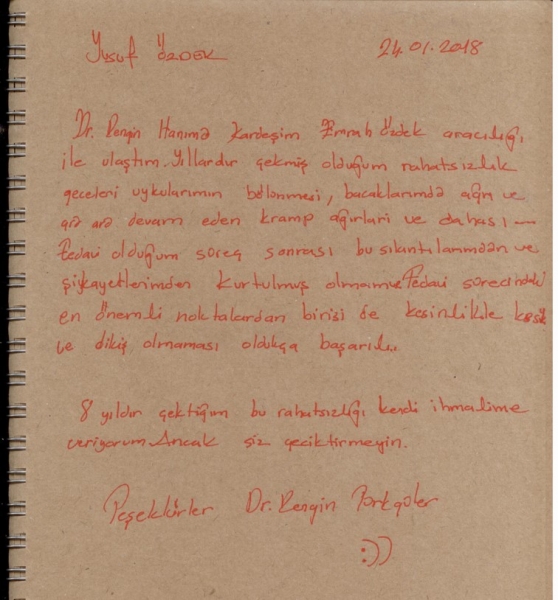 Yusuf Özdek 24.01.2018
Dr. Rengin Hanıma kardeşim Emrah Özdek aracılığı
ile ulaştım. Yıllardır çekmiş olduğum rahatsızlık
geceleri uykularımın bölünmesi, bacaklarımda ağrı ve
ara ara devam eden kramp ağırları ve dahası —
Tedavi olduğum süreç sonrası bu sıkıntılarımdan ve
şikayetlerimden kurtulmuş olmamı Tedavi sürecindeki
en önemli noktalardan birisi de kesinlikle kesik
ve dikiş olmaması oldukça başarılı..
8 yıldır çektiğim bu rahatsızlığı kendi ihmalime
veriyorum. Ancak siz geciktirmeyin.
Teşekkürler Dr. Rengin Türkgüler
:))